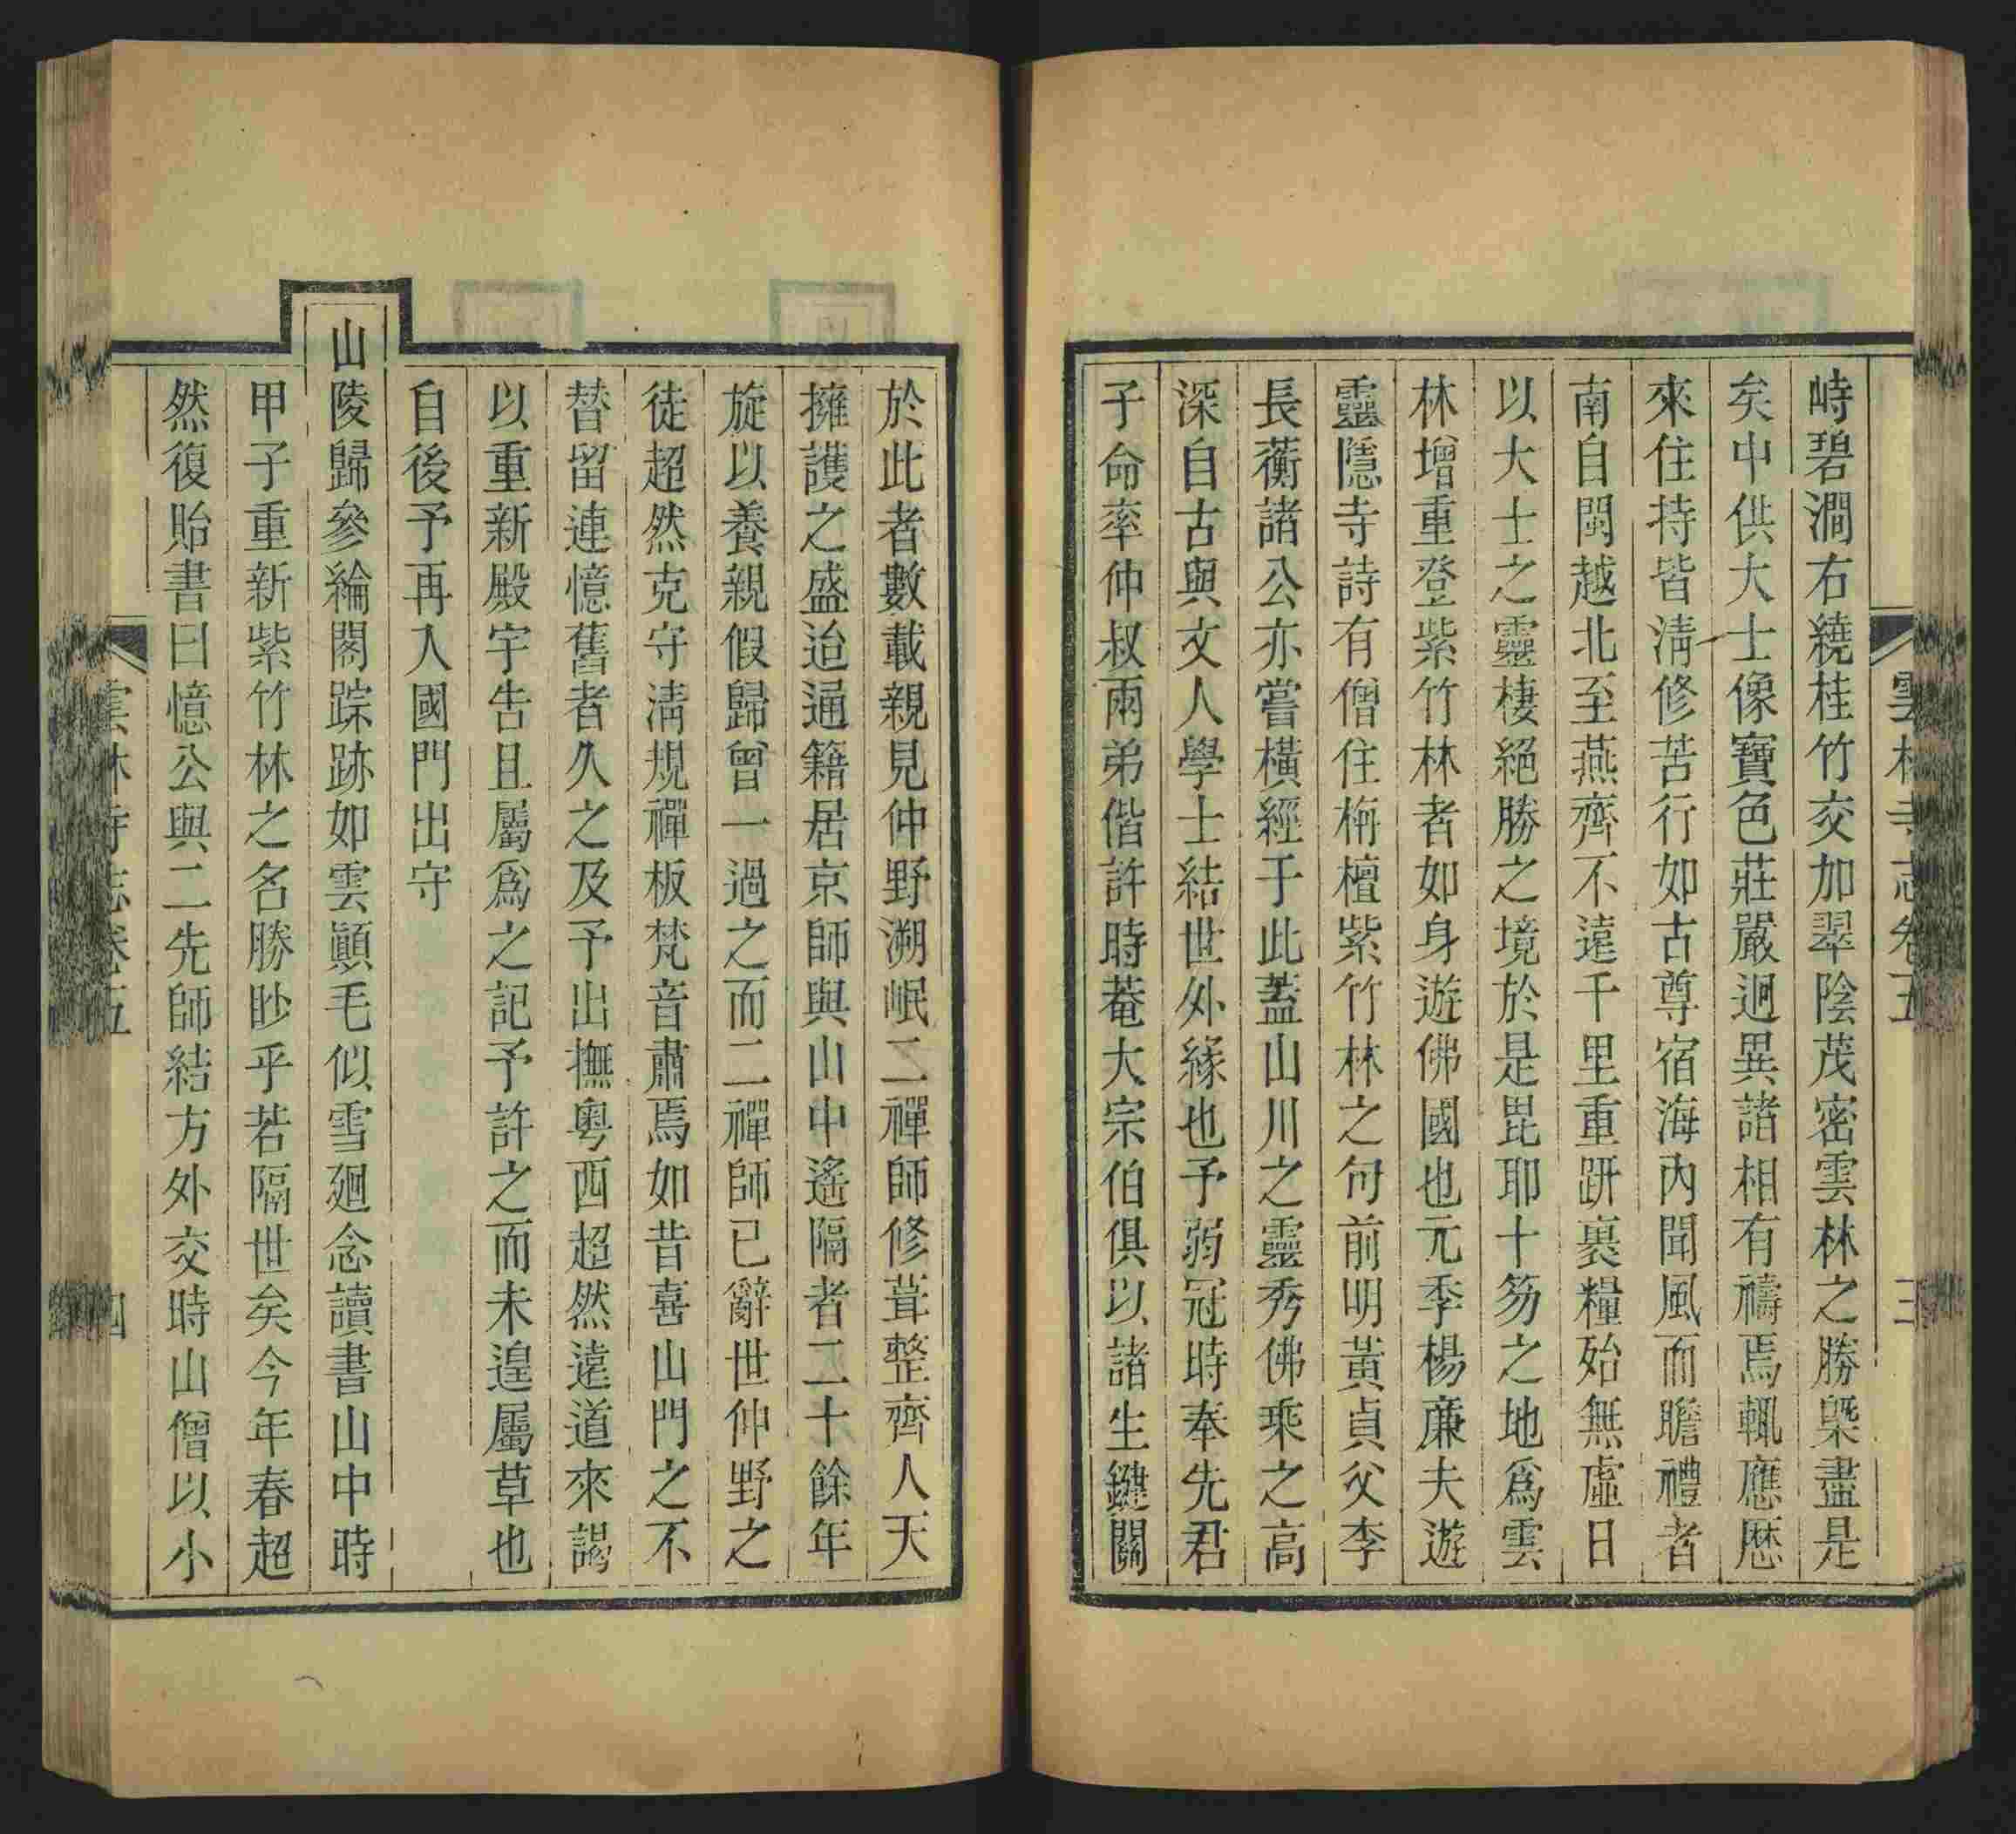 雲林寺志卷五
三
峙碧澗右繞桂竹交加翠陰茂密雲林之勝槩盡是
矣中供大士像寶色莊嚴迥異諸相有禱焉輒應歷
來住持皆淸修苦行如古尊宿海內聞風而瞻禮者
南自閩越北至燕齊不遠千里重趼裹糧殆無虛日
以大士之靈棲絕勝之境於是毘耶十笏之地爲雲
林增重登紫竹林者如身遊佛國也元季楊廉夫遊
靈隱寺詩有僧住栴檀紫竹林之句前明黃貞父李
長蘅諸公亦嘗橫經于此蓋山川之靈秀佛乘之高
深自古與文人學士結世外緣也予弱冠時奉先君
子命率仲叔兩弟偕許時菴大宗伯俱以諸生鍵關
於此者數載親見仲野溯岷二禪師修葺整齊人天
擁護之盛迨通籍居京師與山中遙隔者二十餘年
旋以養親假歸曾一過之而二禪師已辭世仲野之
徒超然克守淸規禪板梵音肅焉如昔喜山門之不
替留連憶舊者久之及予出撫粵西超然遠道來謁
以重新殿宇告且屬爲之記予許之而未遑屬草也
自後予再入國門出守
山陵歸參綸閣踪跡如雲顚毛似雪廻念讀書山中時
甲子重新紫竹林之名勝眇乎若隔世矣今年春超
然復貽書曰憶公與二先師結方外交時山僧以小
雲林寺志卷五
四